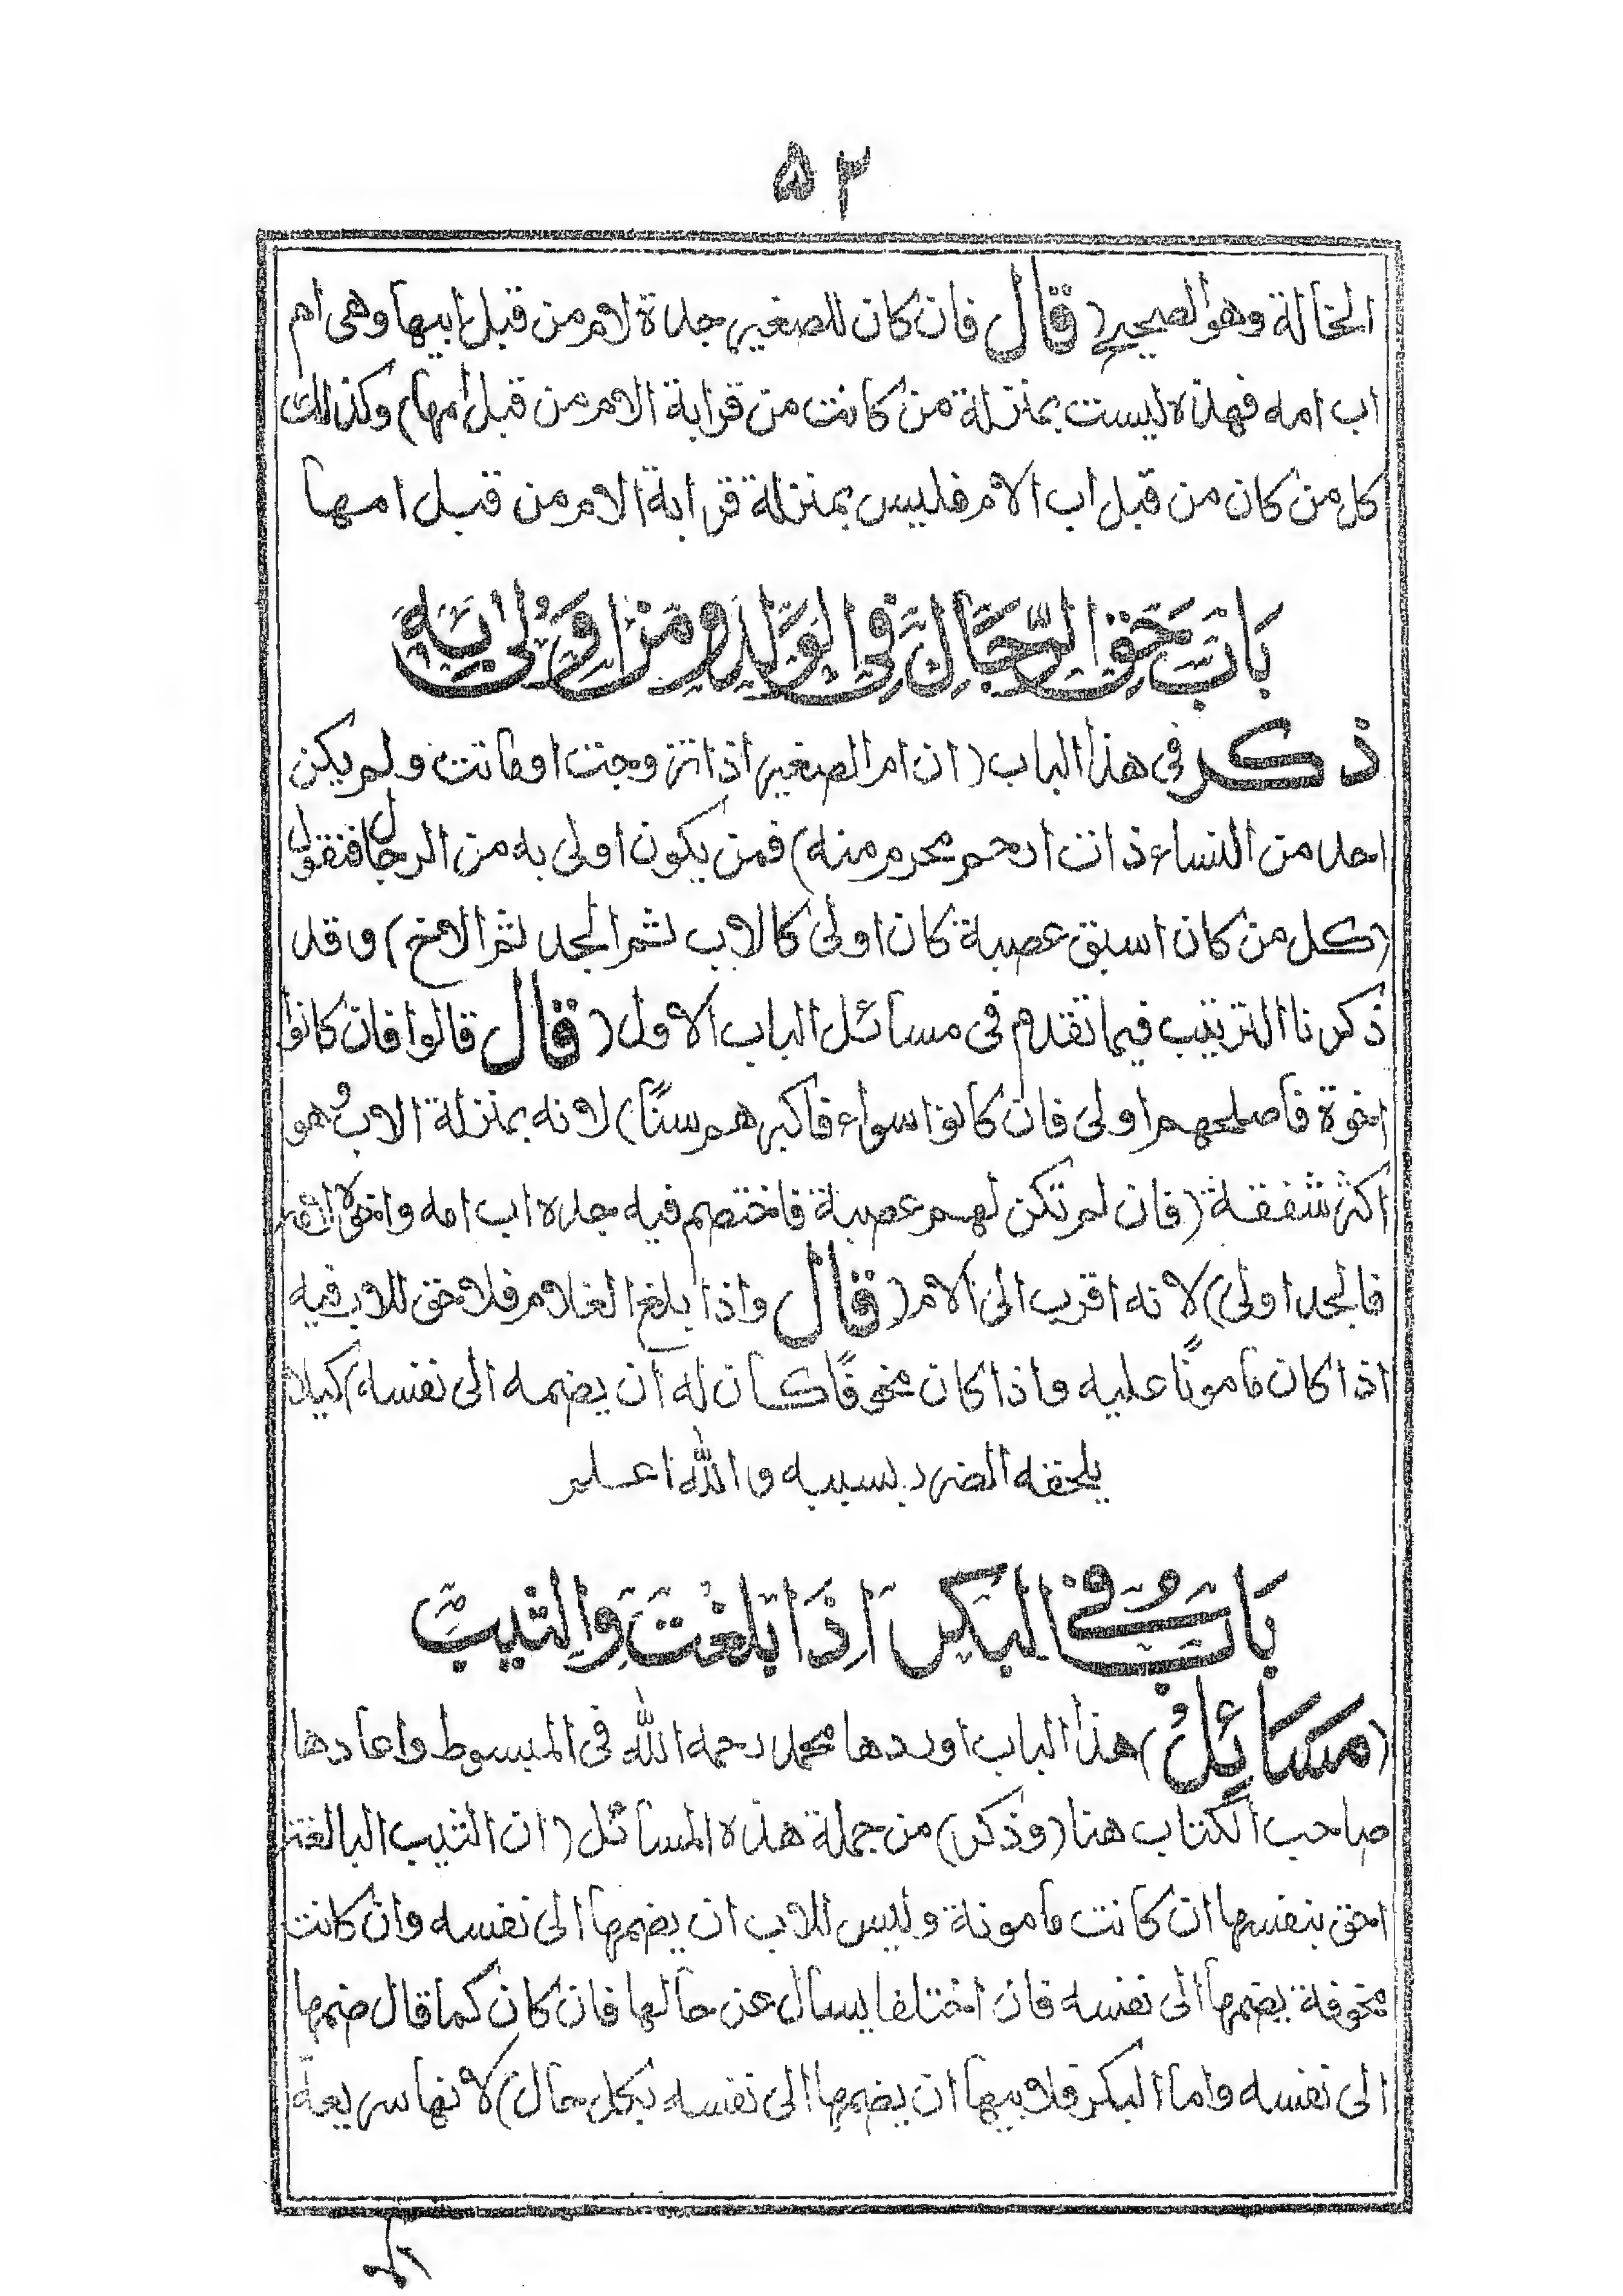 ۵۳
الخالة وهو الصحيح (قال فان كان للصغير جدة لام من قبل ابيها وهى ام
اب امه فهذه ليست بمنزلة من كانت من قرابة الام من قبل امها) وكذلك
كل من كان من قبل اب الام فليس بمنزلة قرابة الام من قبل امها
بَابُ حَقِّ الرِّجَالِ فِى الوَلَدِ ومَن اَولٰى بِهِ
ذكر فى هذا الباب (ان ام الصغير اذا تزوجت او ماتت ولم يكن
احد من النساء ذات ارحم محرم منه) فمن يكون اولى به من الرجال فنقول
(كل من كان اسبق عصبة كان اولى كالاب ثم الجد ثم الاخ) وقد
ذكرنا الترتيب فيما تقدم فى مسائل الباب الاول (قال قالوا فان كانوا
اخوة فاصلحهم اولى فان كانوا سواء فاكبرهم سنًا) لانه بمنزلة الاب وهو
اكثر شفقة (فان لم تكن لهم عصبة فاختصم فيه جده اب امه واخوه لامه
فالجد اولى) لانه اقرب الى الام (قال واذا بلغ الغلام فلا حق للاب فيه
اذا كان مامونًا عليه واذا كان مخوفًا كان له ان يضمه الى نفسه) كيلا
يلحقه الضرر بسببه والله اعلم
بَابٌ فِى البكر اِذَا بَلَغَت وَالثيب
(مَسَائِلُ) هذا الباب اوردها محمد رحمه الله فى المبسوط واعادها
صاحب الكتاب هنا (وذكر) من جملة هذه المسائل (ان الثيب البالغة
احق بنفسها ان كانت مامونة وليس للاب ان يضمها الى نفسه وان كانت
مخوفة يضمها الى نفسه فان اختلفا يسأل عن حالها فان كان كما قال ضمها
الى نفسه واما البكر فلابيها ان يضمها الى نفسه بكل حال) لانها سريعة